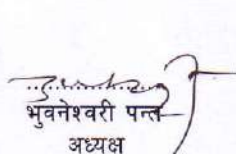 भुवनेश्वरी पन्त
अध्यक्ष